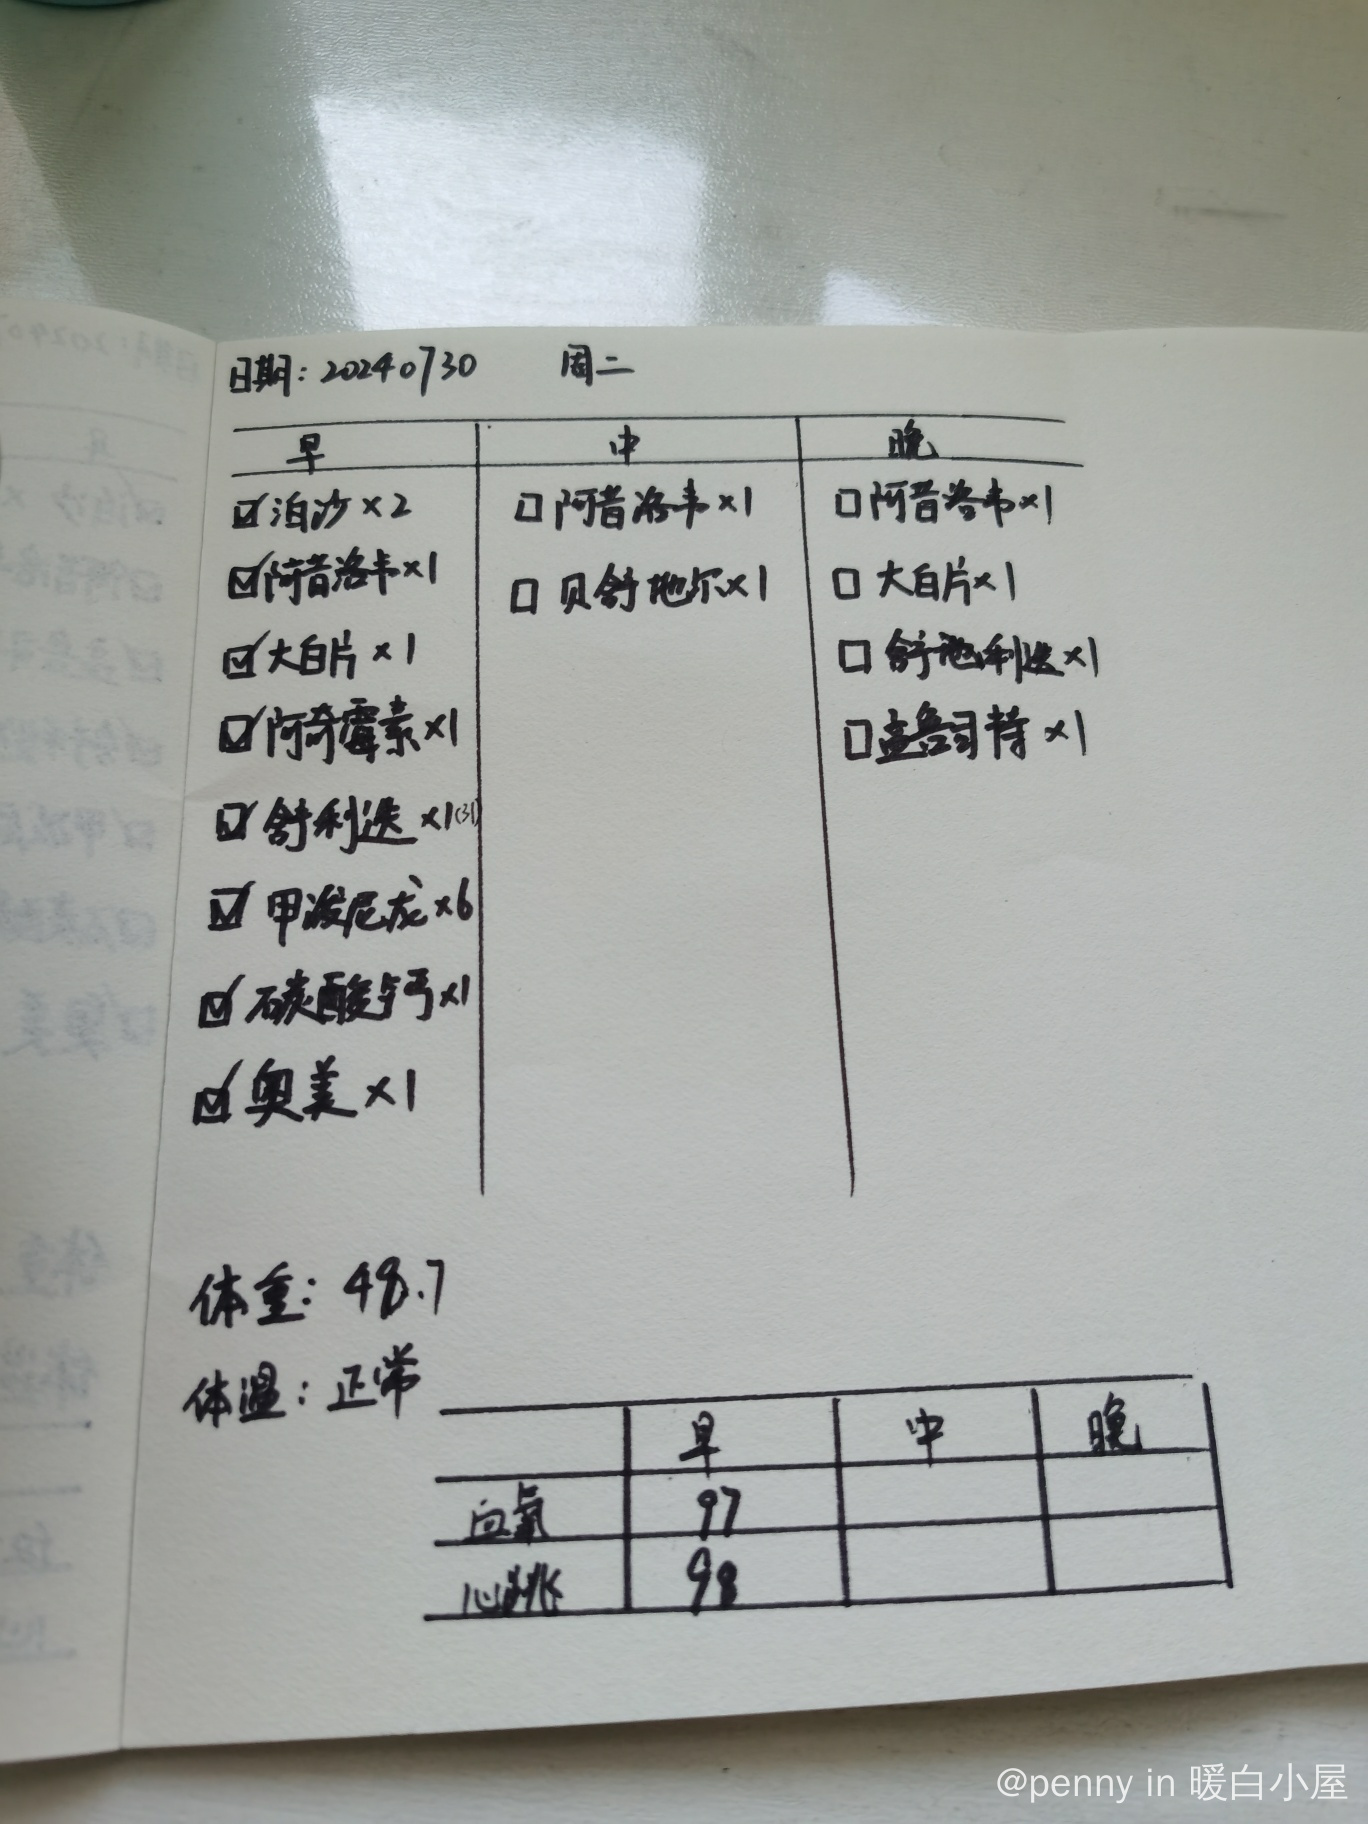 日期：20240730 周二
早 中 晚
☑泊沙×2
☑阿昔洛韦×1
☑大白片×1
☑阿奇霉素×1
☑舒利迭×1(31)
☑甲泼尼龙×6
☑碳酸钙×1
☑奥美×1
□阿昔洛韦×1
□贝舒地尔×1
□阿昔洛韦×1
□大白片×1
□舒利迭×1
□孟鲁司特×1
体重：48.7
体温：正常
早 中 晚
血氧 97
心跳 98
@penny in 暖白小屋